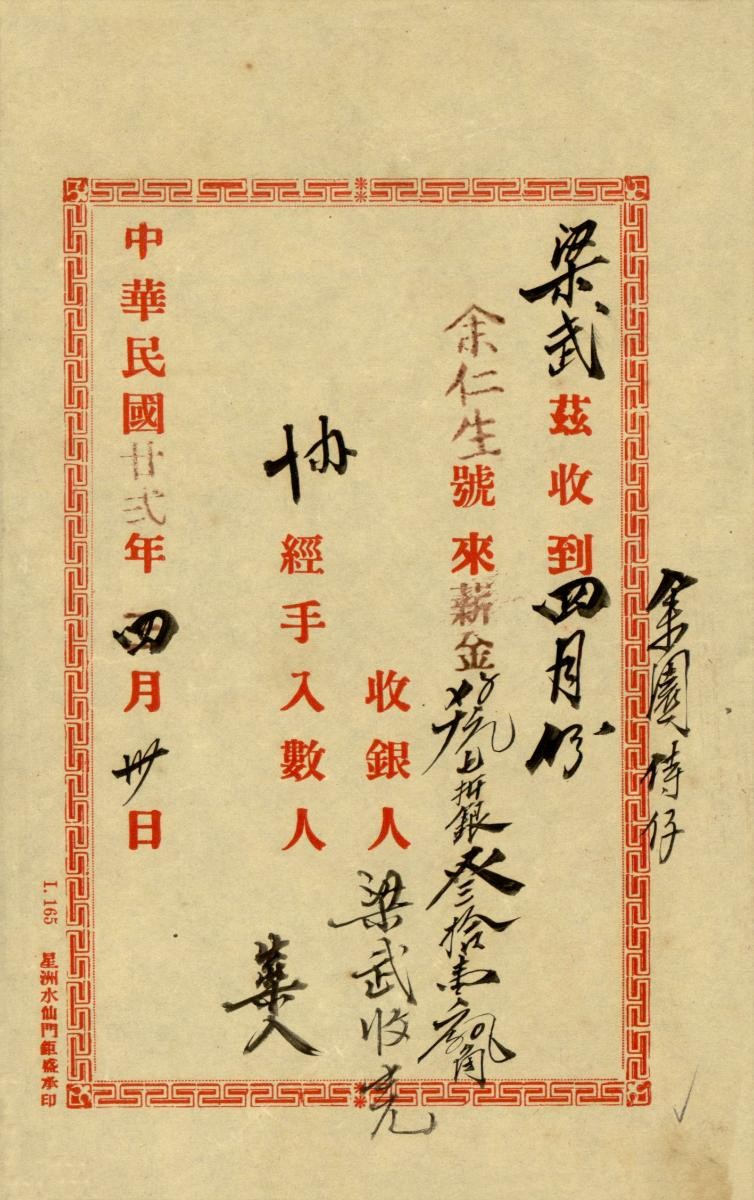 余園侍仔
梁武茲收到四月份
余仁生號來薪金七折銀叁拾壹
收銀人梁武收
協經手入數人
中華民國廿弍年四月卅日
I. 165 星洲水仙門鉅盛承印